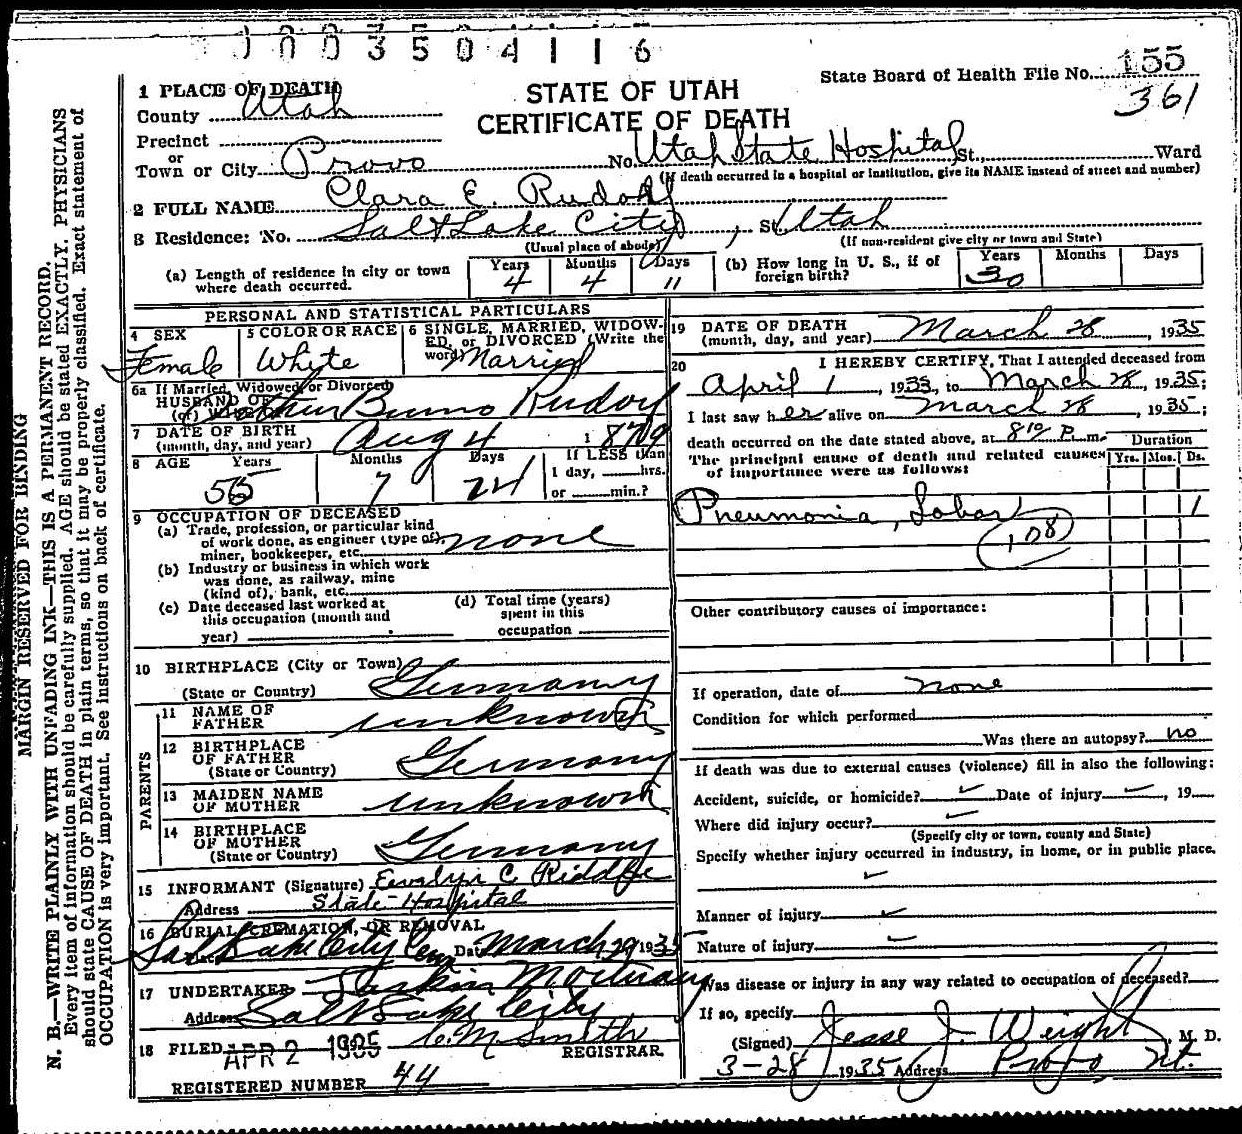 1003504116
State Board of Health File No. 155
361
STATE OF UTAH
CERTIFICATE OF DEATH
1 PLACE OF DEATH
County Utah
Precinct
or
Town or City Provo No. Utah State Hospital St., Ward
(If death occurred in a hospital or institution, give its NAME instead of street and number)
2 FULL NAME Clara E. Rudolf
3 Residence: No. Salt Lake City, St. Utah
(Usual place of abode) (If non-resident give city or town and State)
(a) Length of residence in city or town where death occurred. Years 4 Months 4 Days 11 (b) How long in U. S., if of foreign birth? Years 30 Months Days
PERSONAL AND STATISTICAL PARTICULARS
4 SEX
Female
5 COLOR OR RACE
White
6 SINGLE, MARRIED, WIDOW-
ED, or DIVORCED (Write the
word) Married
6a If Married, Widowed or Divorced
HUSBAND OF
(or) WIFE OF Bruno Rudolf
7 DATE OF BIRTH
(month, day, and year) Aug 4 1879
8 AGE Years 55 Months 7 Days 24 If LESS than
1 day, hrs.
or min.?
9 OCCUPATION OF DECEASED
(a) Trade, profession, or particular kind
of work done, as engineer (type of)
miner, bookkeeper, etc. none
(b) Industry or business in which work
was done, as railway, mine
(kind of), bank, etc.
(c) Date deceased last worked at
this occupation (month and
year)
(d) Total time (years)
spent in this
occupation
10 BIRTHPLACE (City or Town)
(State or Country) Germany
PARENTS
11 NAME OF
FATHER unknown
12 BIRTHPLACE
OF FATHER
(State or Country) Germany
13 MAIDEN NAME
OF MOTHER unknown
14 BIRTHPLACE
OF MOTHER
(State or Country) Germany
15 INFORMANT (Signature) Evalyn C. Riddle
Address State Hospital
16 BURIAL, CREMATION, OR REMOVAL
Salt Lake City Cem Date March 29 1935
17 UNDERTAKER Larkin Mortuary
Address Salt Lake City
18 FILED APR 2 1935 C M Smith
REGISTRAR
REGISTERED NUMBER 44
19 DATE OF DEATH
(month, day, and year) March 28, 1935
20 I HEREBY CERTIFY, That I attended deceased from
April 1, 1933, to March 28, 1935;
I last saw her alive on March 28, 1935;
death occurred on the date stated above, at 8 10 P. m. Duration
The principal cause of death and related causes Yrs. Mos. Ds.
of importance were as follows:
Pneumonia, Lobar 1
108
Other contributory causes of importance:
If operation, date of none
Condition for which performed
Was there an autopsy? no
If death was due to external causes (violence) fill in also the following:
Accident, suicide, or homicide? ✓ Date of injury ✓, 19
Where did injury occur? ✓
(Specify city or town, county and State)
Specify whether injury occurred in industry, in home, or in public place.
✓
Manner of injury ✓
Nature of injury ✓
Was disease or injury in any way related to occupation of deceased?
If so, specify
(Signed) Jesse J. Weight, M. D.
3-28 1935 Address Provo, Ut.
MARGIN RESERVED FOR BINDING
N. B.—WRITE PLAINLY WITH UNFADING INK—THIS IS A PERMANENT RECORD.
Every item of information should be carefully supplied. AGE should be stated EXACTLY. PHYSICIANS
should state CAUSE OF DEATH in plain terms, so that it may be properly classified. Exact statement of
OCCUPATION is very important. See instructions on back of certificate.